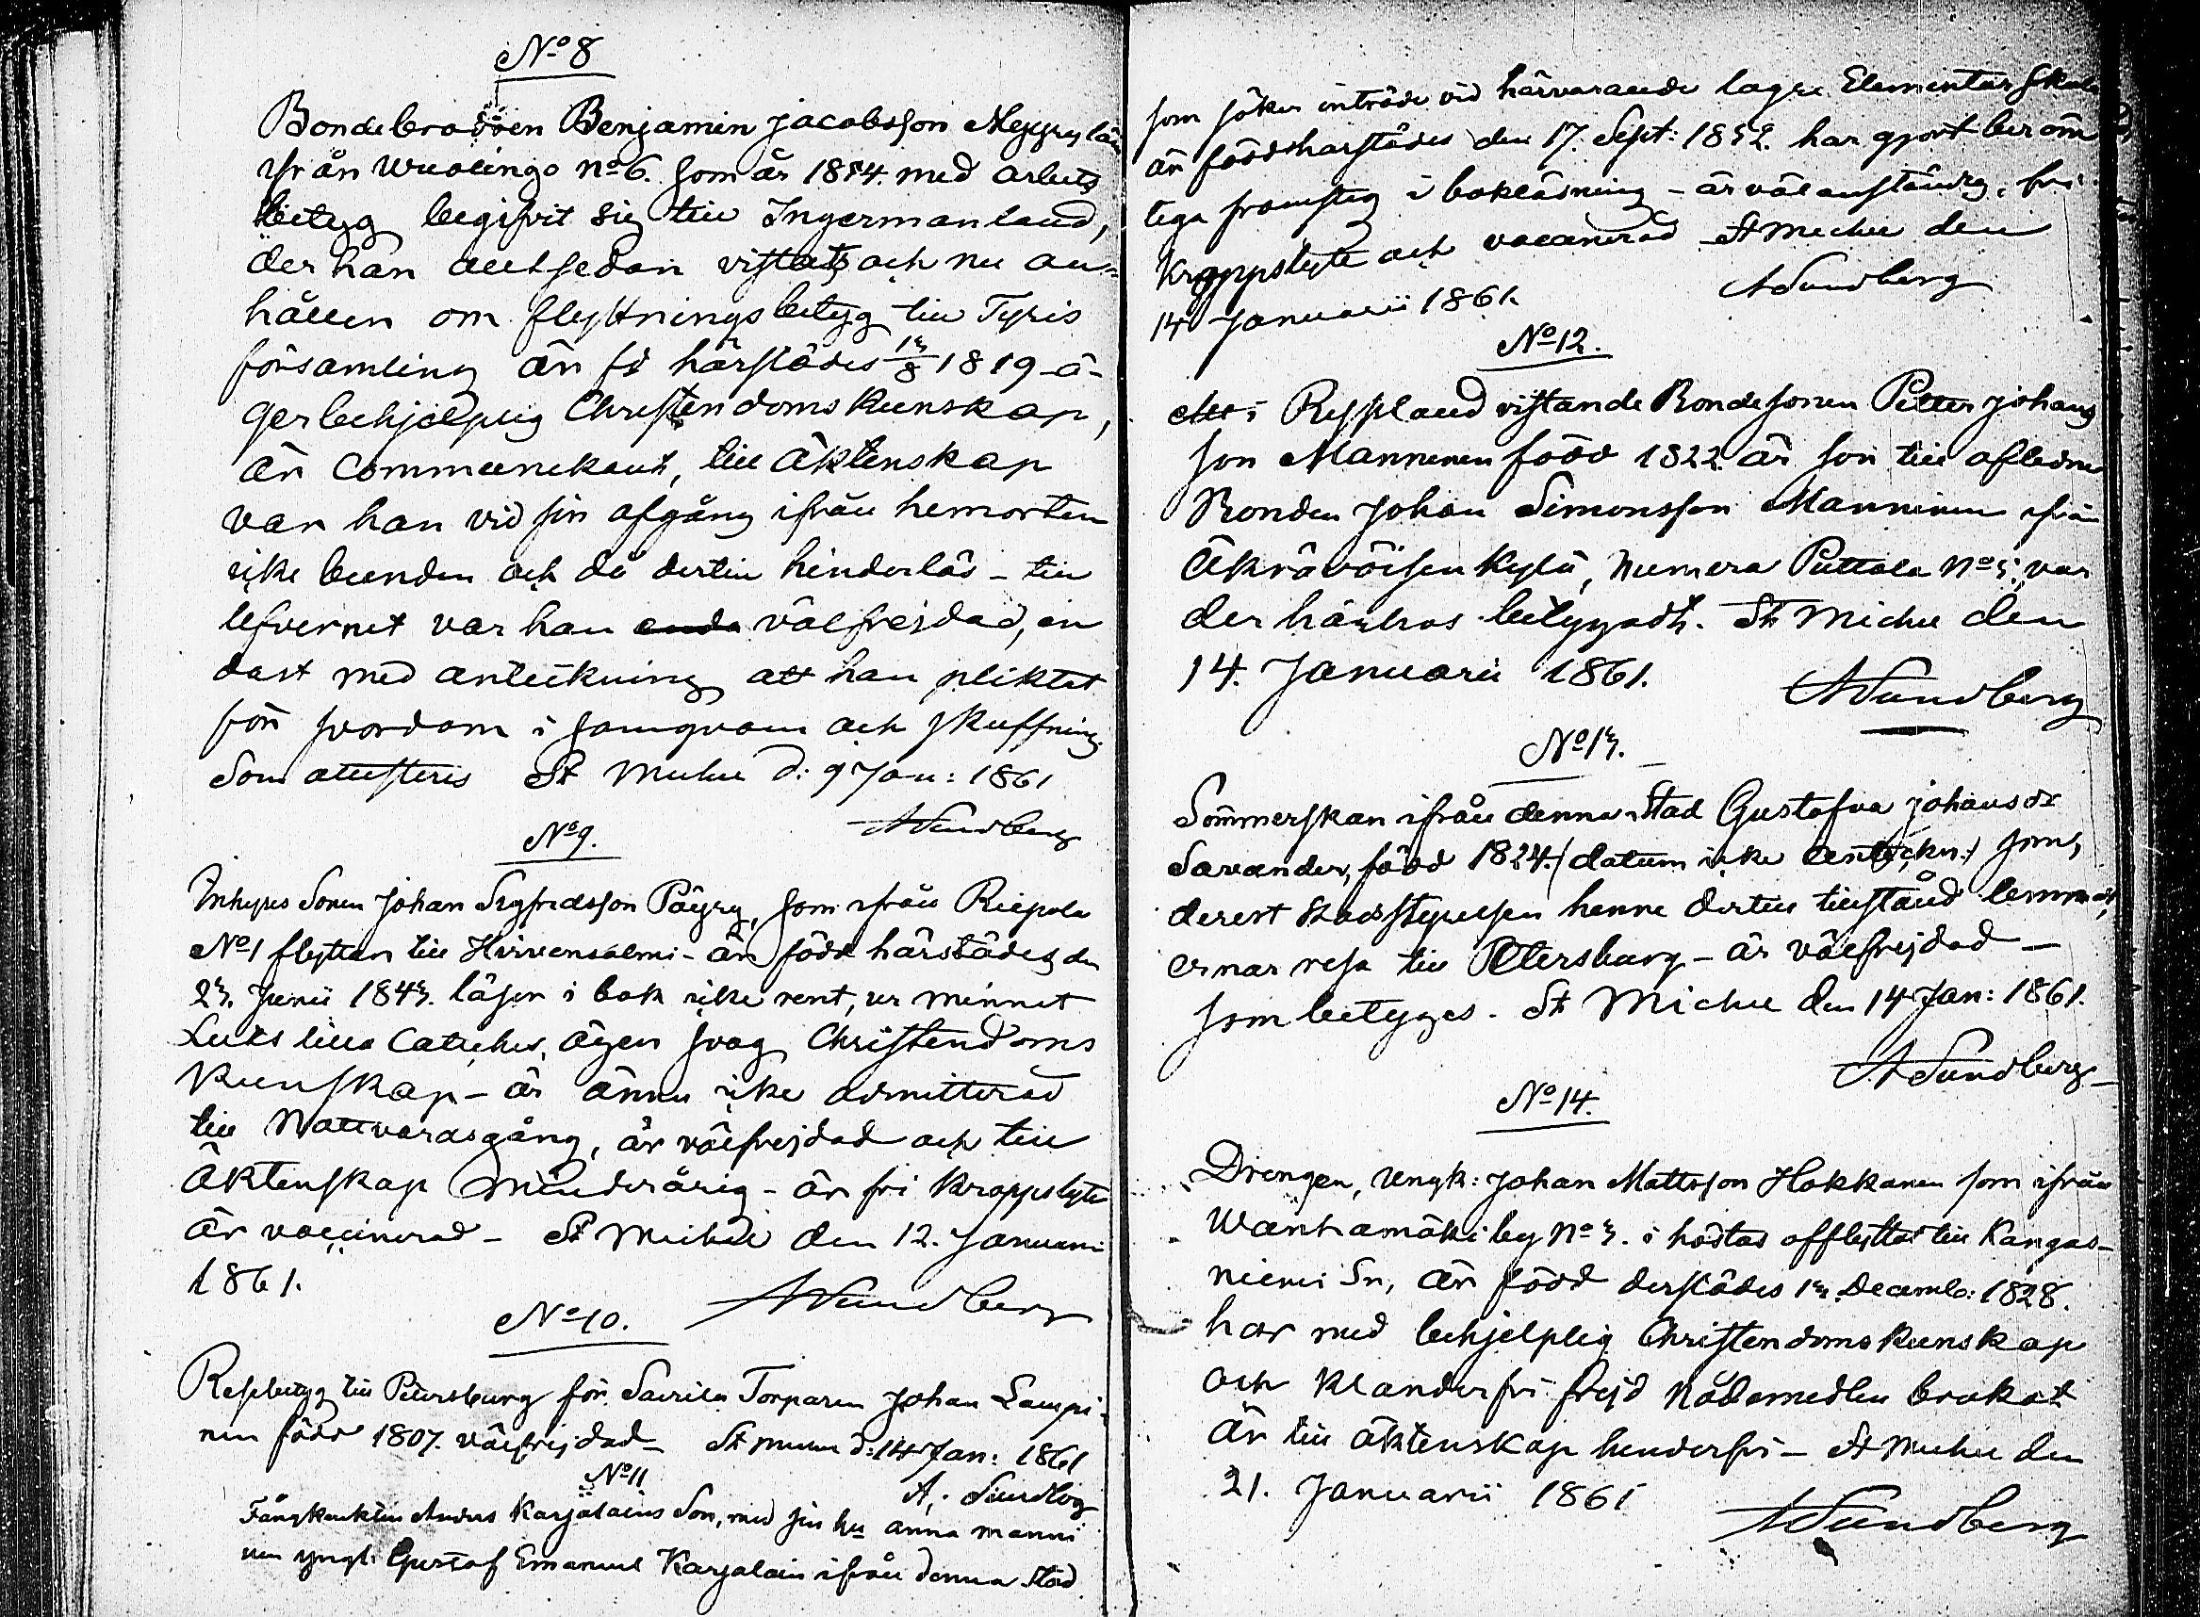 No 8
Bondebrodren Benjamin Jacobsson
ifrån Wuolingo No 6. som år 1854. med arbets
betyg begifvit sig till Ingermanland,
der han alltsedan vistats och nu an-
hållen om flyttningsbetyg till Tyris
församling är fd härstädes 13/8 1819 - ä-
ger behjelplig Christendomskunskap,
är Communikant, till äktenskap
var han vid sin afgång ifrån hemorten
icke bunden och då dertill hinderlös - till
lefvernet var han välfrejdad, en
dast med anteckning att han pliktat
för hordom i samqvam och skuffning.
Som attesteris St Michel d: 9 Jan: 1861
ASundberg
No 9.
Inhyses Sonen Johan Sigfredsson Päyry, som ifrån Riepola
No 1 flyttar till Hirvensalmi - är född härstädes den
23. Junii 1843. läser i bok icke rent, ur minnet
Luts lilla Cateches, äger svag Christendoms
kunskap - är ännu icke admitterad
till Nattvardsgång, är välfrejdad och till
Äktenskap minderårig - är fri kroppslyte
är vaccinerad - St Michel den 12. Januarii
1861.
ASundberg
No 10.
Resebetyg till Petersburg för Sairila Torparen Johan Laupi-
nen född 1807. välfrejdad - St Michel d: 14 Jan: 1861
A. Sundbog
No 11
Fångknekten Anders Karjalains Son, med sin hu Anna Manni
nen yngl: Gustaf Emanuel Karjalain ifrån denna Stad
som söker inträde vid härvarande lagre Elementar Skola
är född härstädes den 17. Sept: 1852. har gjort beröm
liga framsteg i bokläsning - är välanständig, fri
kroppslyte och vaccinerad - St Michel den
14 Januarii 1861.
ASundberg
No 12.
Att i Ryssland vistande Bondesonen Petter Johans
son Manninen född 1822 är son till aflidne
Bonden Johan Simonsson Manninen ifrån
Äkräväisenkylä, numera Puttola No 5; var
der härhos betyggadt. St Michel den
14. Januarii 1861.
ASundberg
No 13.
Sömmerskan ifrån denna Stad Gustafva Johansdr
Savander, född 1824. (datum icke anteckn:) som,
derest Stadsstyrelsen henne dertill tillstånd lemnat,
ernar resa till Petersburg - är välfrejdad -
som betyges. St Michel den 14 Jan: 1861.
ASundberg
No 14.
Drengen, Ungk: Johan Mattsson Hokkanen som ifrån
Wanhamäki by No 3. i höstas afflyttat till Kangas-
niemi Sn, är född derstädes 13. Decemb: 1828.
har med behjelplig Christendomskunskap
och klanderfri frejd Nådemedlen brukat
är till äktenskap hinderfri - St Michel den
21. Januarii 1861
ASundberg